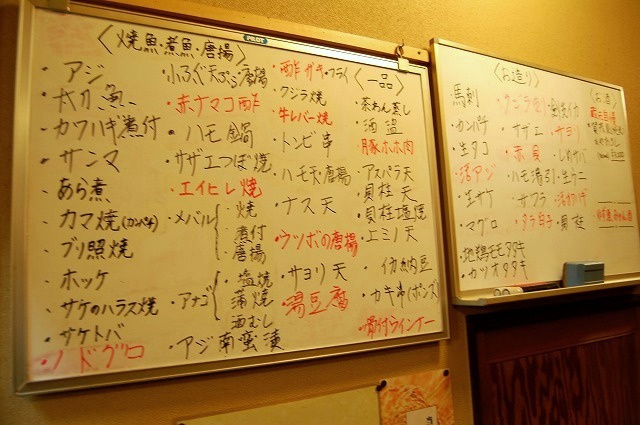 PILOT
〈焼魚・煮魚・唐揚〉
・アジ
・太刀魚
・カワハギ煮付
・サンマ
・あら煮
・カマ焼(カンパチ)
・ブリ照焼
・ホッケ
・サケのハラス焼
・サケトバ
・ノドグロ
・小ふぐ天ぷら・唐揚
・赤ナマコ酢
・ハモ鍋
・サザエつぼ焼
・エイヒレ焼
・メバル
・焼
・煮付
・唐揚
・アナゴ
・塩焼
・蒲焼
・酒むし
・アジ南蛮漬
・酢ガキ・フライ
・クジラ焼
・牛レバー焼
・トンビ串
・ハモ天・唐揚
・ナス天
・ウツボの唐揚
・サヨリ天
・湯豆腐
〈一品〉
・茶わん蒸し
・豚ホホ肉
・アスパラ天
・貝柱天
・貝柱塩焼
・エミノ天
・イカ納豆
・カキ串(ポンズ)
・骨付ウインナー
〈お造り〉
・馬刺
・カンパチ
・生タコ
・活アジ
・生サケ
・マグロ
・地鶏モモタタキ
・カツオタタキ
・サザエ
・赤貝
・ハモ湯引
・サワラ
・タラ白子
・サヨリ
・しめサバ
・生ウニ
・貝柱